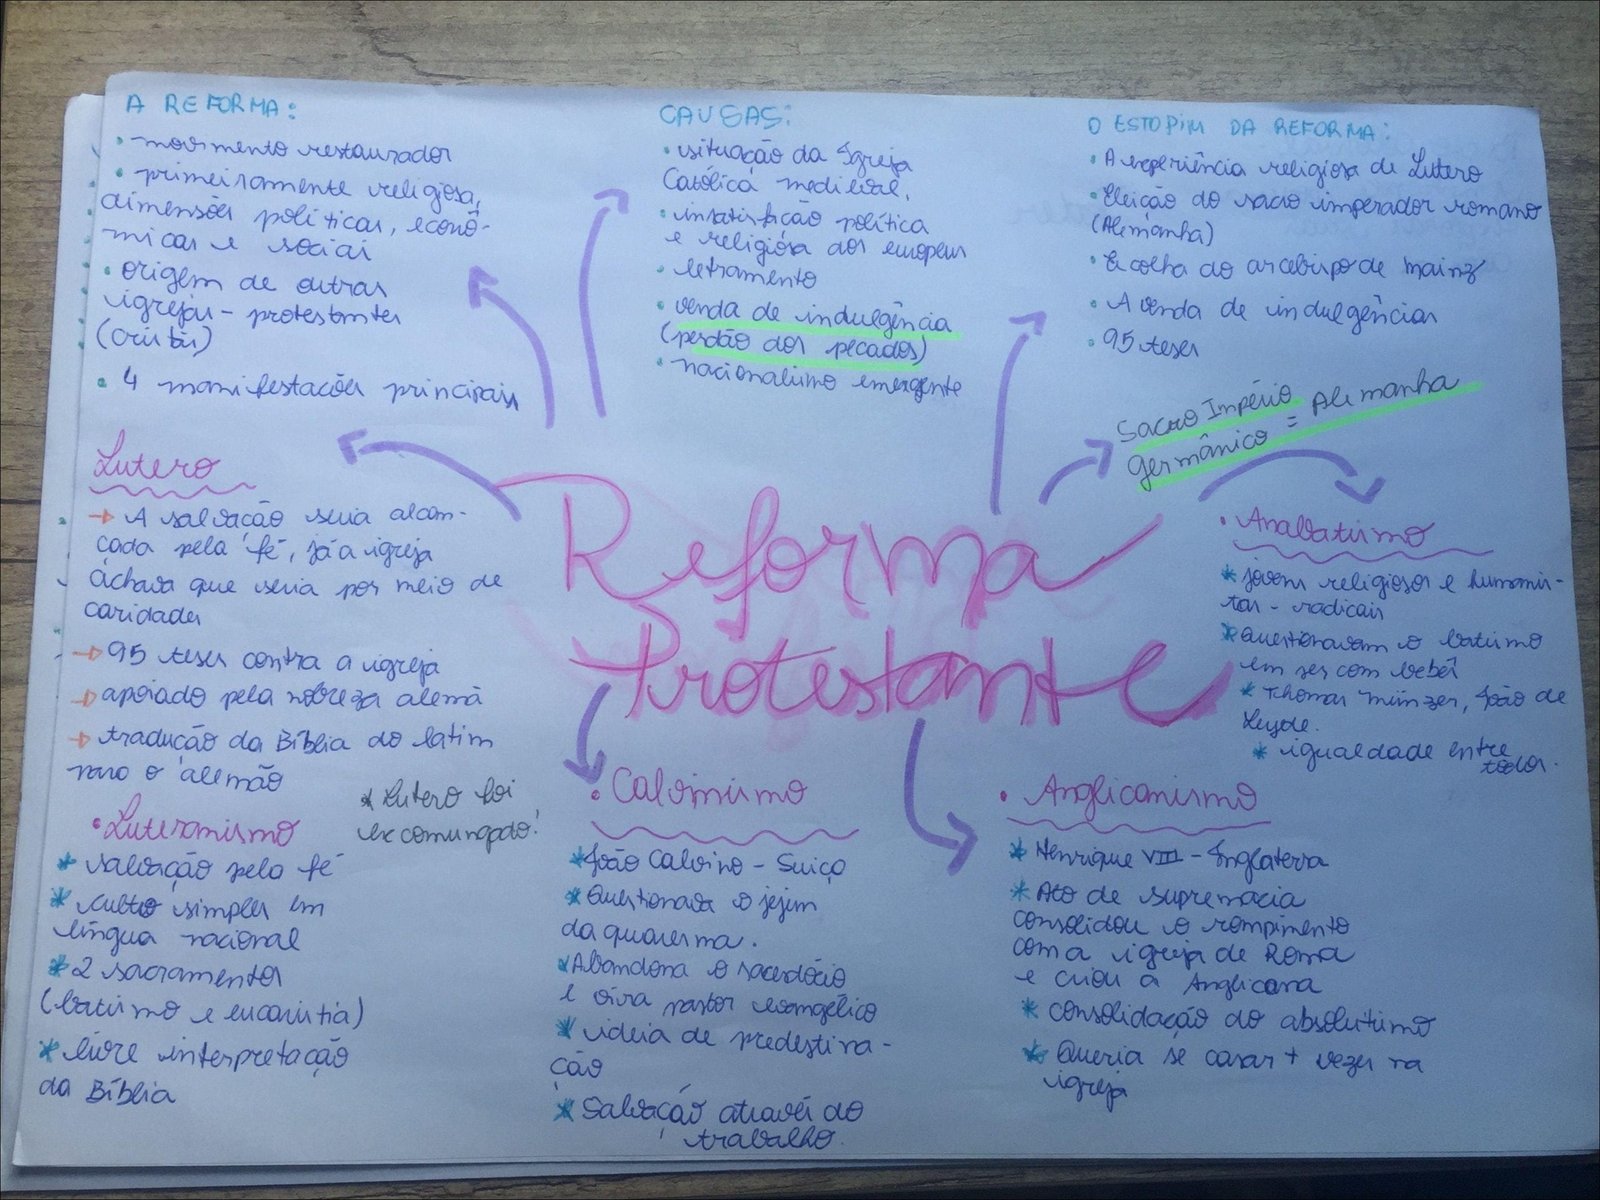 A REFORMA:
• movimento restaurador
• primeiramente religiosa,
dimensões políticas, econô-
micas e sociais
• origem de outras
igrejas - protestantes
(cristãs)
• 4 manifestações principais
CAUSAS:
• situação da Igreja
Católica medieval.
• insatisfação política
e religiosa dos europeus
• letramento
• venda de indulgência
(perdão dos pecados)
• nacionalismo emergente
O ESTOPIM DA REFORMA:
• A experiência religiosa de Lutero
• Eleição do sacro imperador romano
(Alemanha)
• Escolha do arcebispo de mainz
• A venda de indulgências
• 95 teses
Sacro Império
germânico = Alemanha
Reforma
Protestante
Lutero
→ A salvação seria alcan-
çada pela fé, já a igreja
achava que seria por meio de
caridades
→ 95 teses contra a igreja
→ apoiado pela nobreza alemã
→ tradução da Bíblia do latim
para o alemão
* Lutero foi
excomungado!
• Luteranismo
* salvação pela fé
* culto simples em
língua nacional
* 2 sacramentos
(batismo e eucaristia)
* livre interpretação
da Bíblia
• Calvinismo
* João Calvino - Suiça
* Questionava o jejum
da quaresma.
* Abandona o sacerdócio
e vira pastor evangélico
* ideia de predestina-
ção
* Salvação através do
trabalho.
• Anglicanismo
* Henrique VIII - Inglaterra
* Ato de supremacia
consolidou o rompimento
com a igreja de Roma
e criou a Anglicana
* consolidação do absolutismo
* Queria se casar + vezes na
igreja
• Anabatismo
* jovens religiosos e humanis-
tas - radicais
* Questionavam o batismo
em ser com bebês
* Thomas münzer, João de
Leyde.
* igualdade entre
todos.